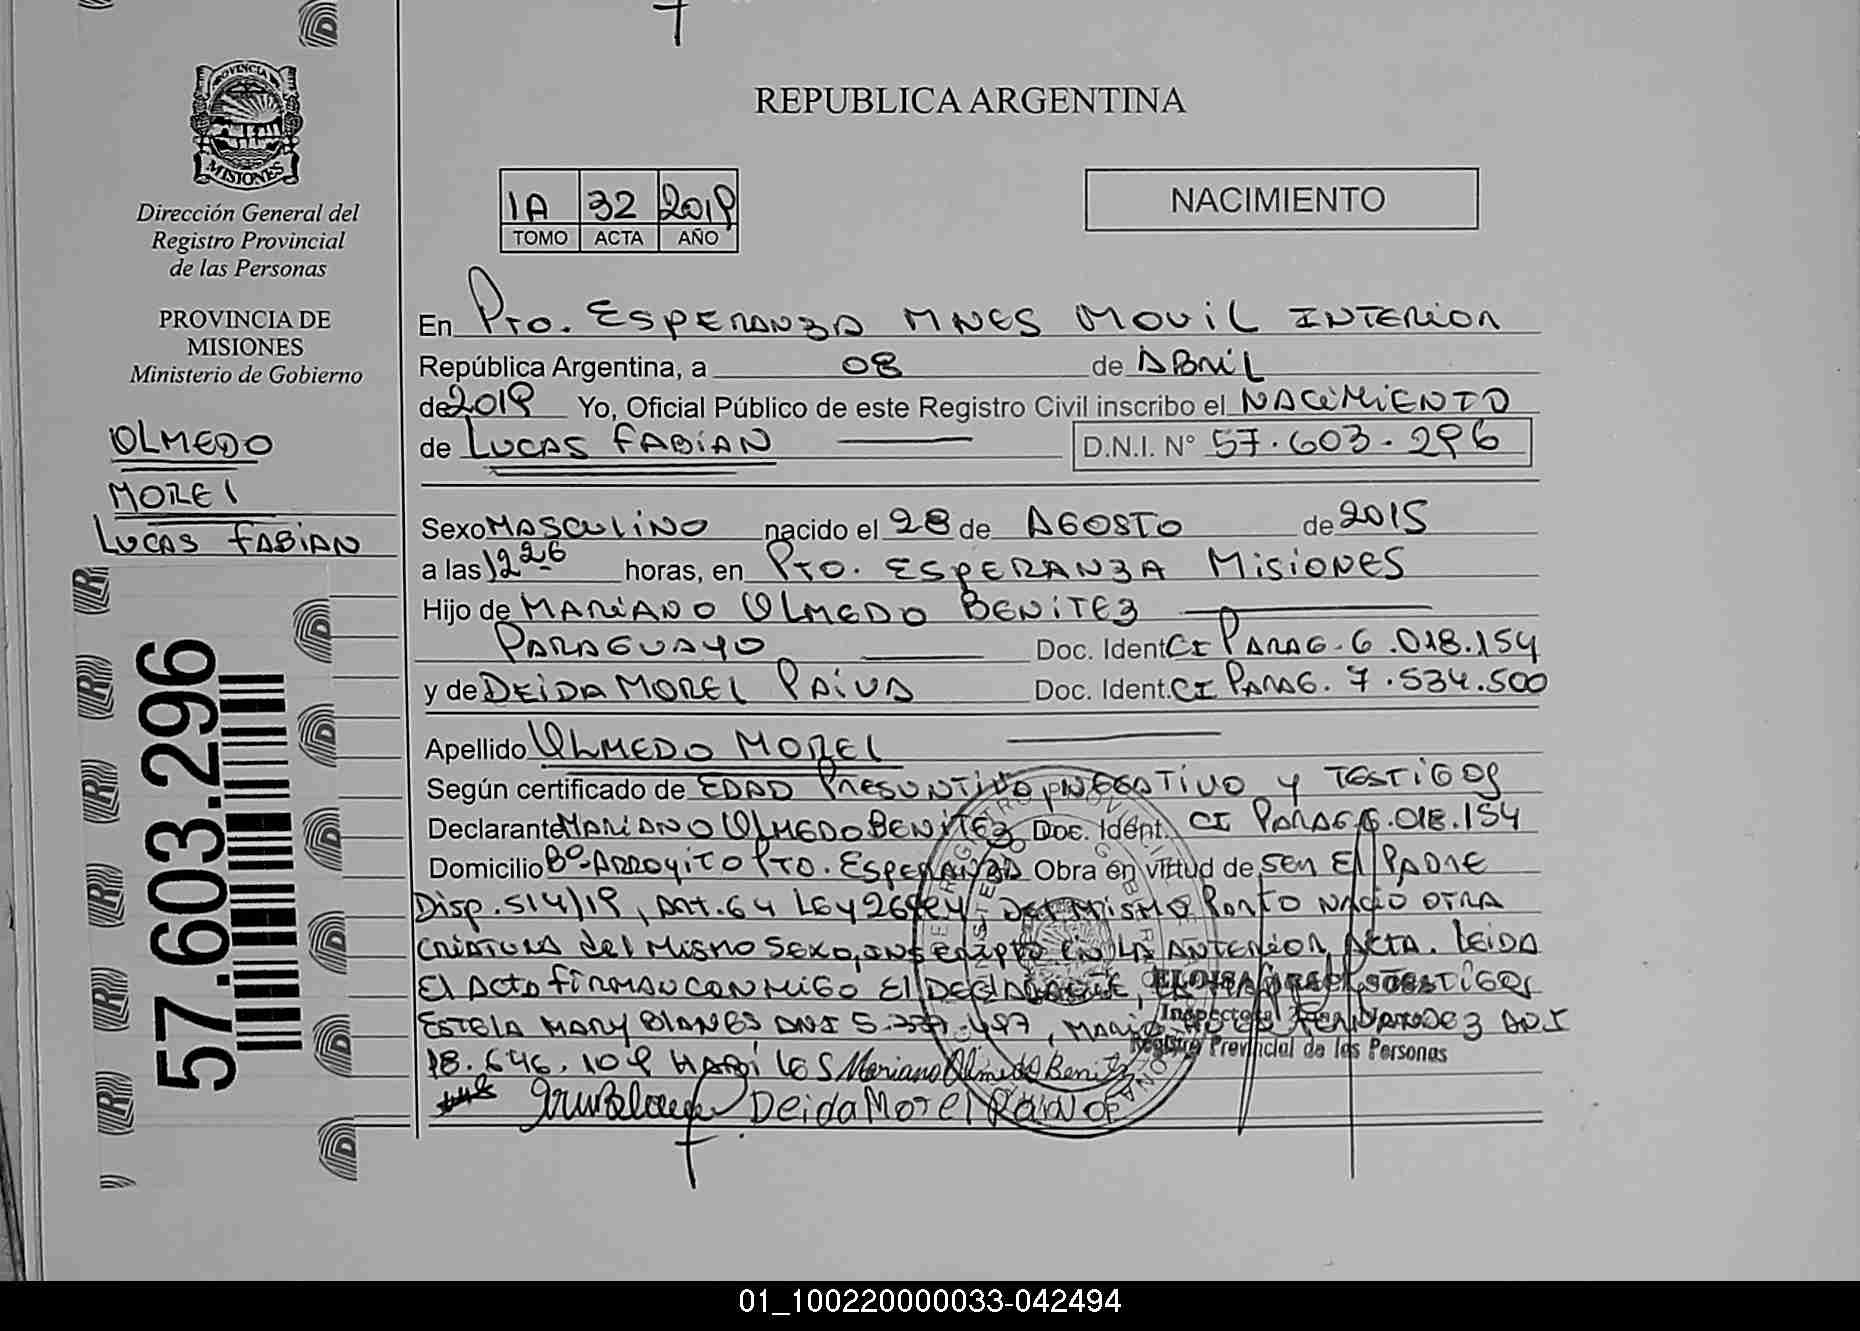 REPUBLICA ARGENTINA
PROVINCIA
MISIONES
Dirección General del
Registro Provincial
de las Personas
PROVINCIA DE
MISIONES
Ministerio de Gobierno
OLMEDO
MOREL
LUCAS FABIAN
57.603.296
1A 32 2019
TOMO ACTA AÑO
NACIMIENTO
En Pto. ESPERANZA MNES MOVIL INTERIOR
República Argentina, a 08 de ABRIL
de 2019 Yo, Oficial Público de este Registro Civil inscribo el NACIMIENTO
de LUCAS FABIAN D.N.I. N° 57.603.296
Sexo MASCULINO nacido el 28 de AGOSTO de 2015
a las 12 26 horas, en Pto. ESPERANZA MISIONES
Hijo de MARIANO OLMEDO BENITEZ
PARAGUAYO Doc. Ident. CI PARAG. 6.018.154
y de DEIDA MOREL PAIVA Doc. Ident. CI PARAG. 7.534.500
Apellido OLMEDO MOREL
Según certificado de EDAD PRESUNTIVO, NEGATIVO Y TESTIGOS
Declarante MARIANO OLMEDO BENITEZ Doc. Ident. CI PARAG 6.018.154
Domicilio Bº-ARROYITO PTO. ESPERANZA Obra en virtud de SER EL PADRE
Disp. 514/19, ART. 64 LEY 26424, DEL MISMO PARTO NACIÓ OTRA
CRIATURA del MISMO SEXO, INSCRIPTO EN LA ANTERIOR ACTA. LEIDA
El ACTA FIRMAN CONMIGO El DECLARANTE, TESTIGOS
ESTELA MARY BLANES DNI FERNANDEZ DNI
Inspectora
Registro Provincial de las Personas
18.646.109 HABILES Mariano Olmedo Benitez
Deida Morel Paiva
01_100220000033-042494